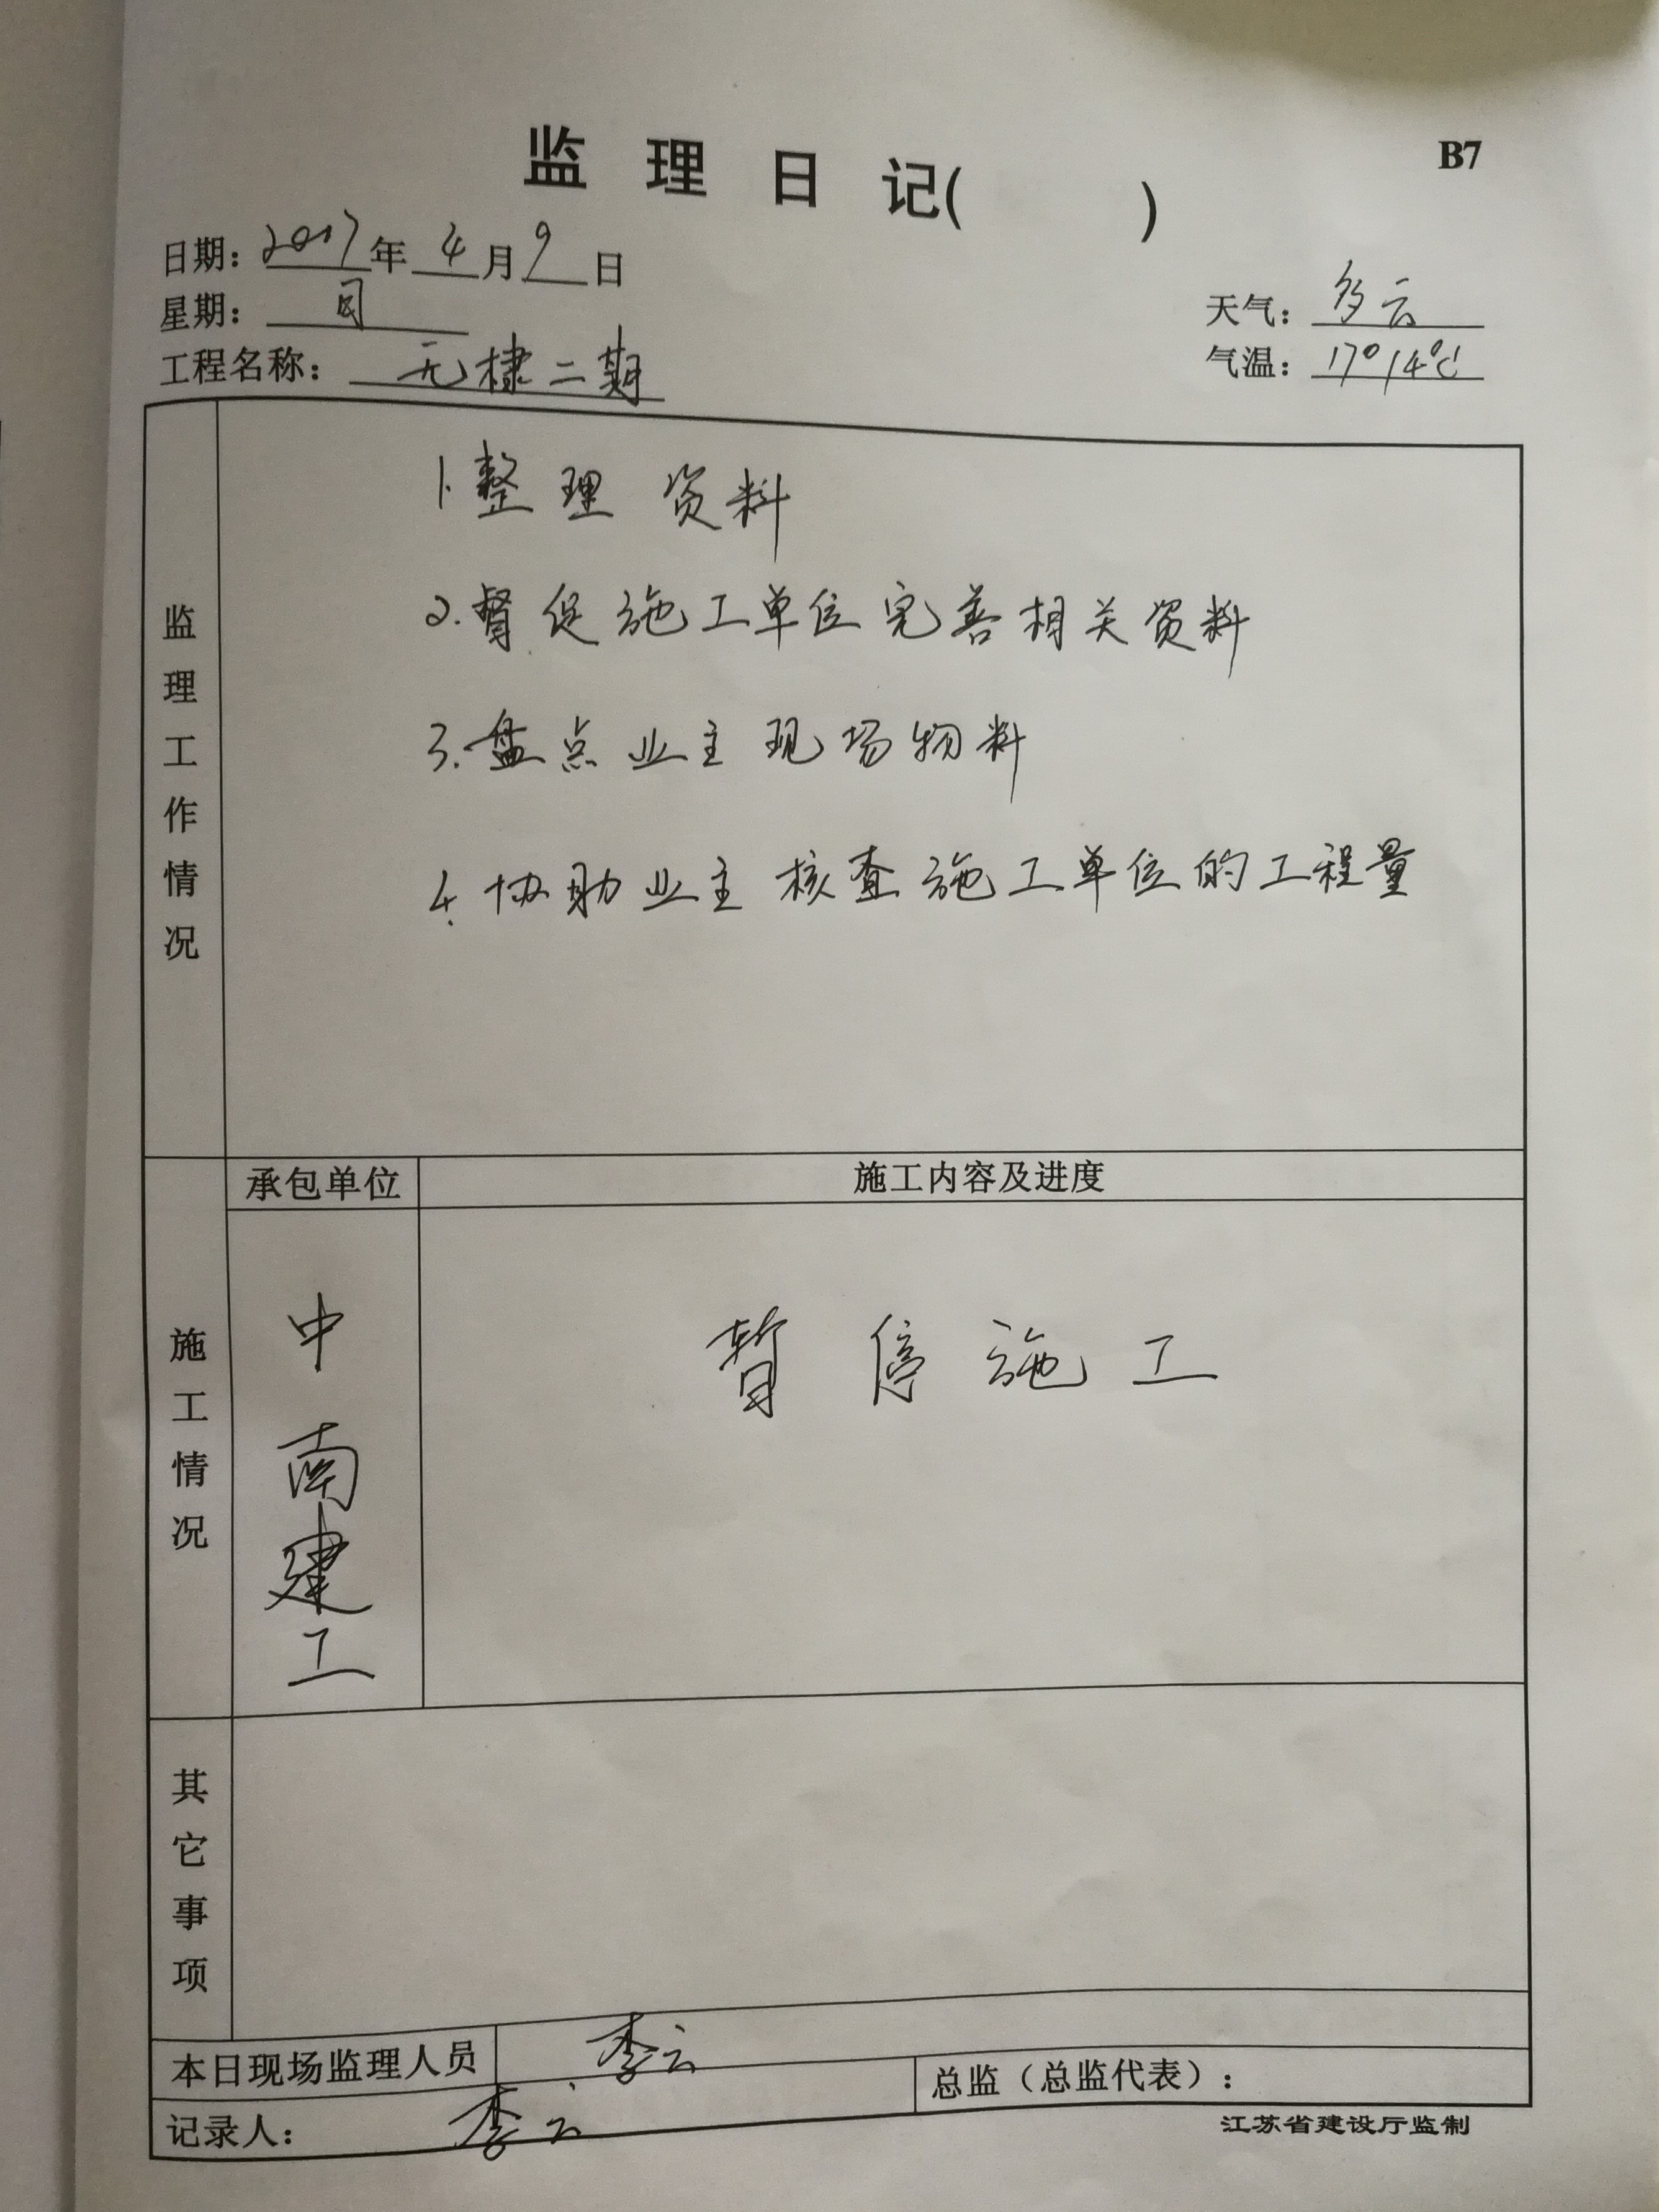 监理日记(    )
B7
日期：2017年4月9日
星期：日
天气：多云
工程名称：无棣二期
气温：17°14℃
监理工作情况
1.整理资料
2.督促施工单位完善相关资料
3.盘点业主现场物料
4.协助业主核查施工单位的工程量
施工情况
承包单位
施工内容及进度
中南建工
暂停施工
其它事项
本日现场监理人员
李云
总监（总监代表）：
记录人：李云
江苏省建设厅监制